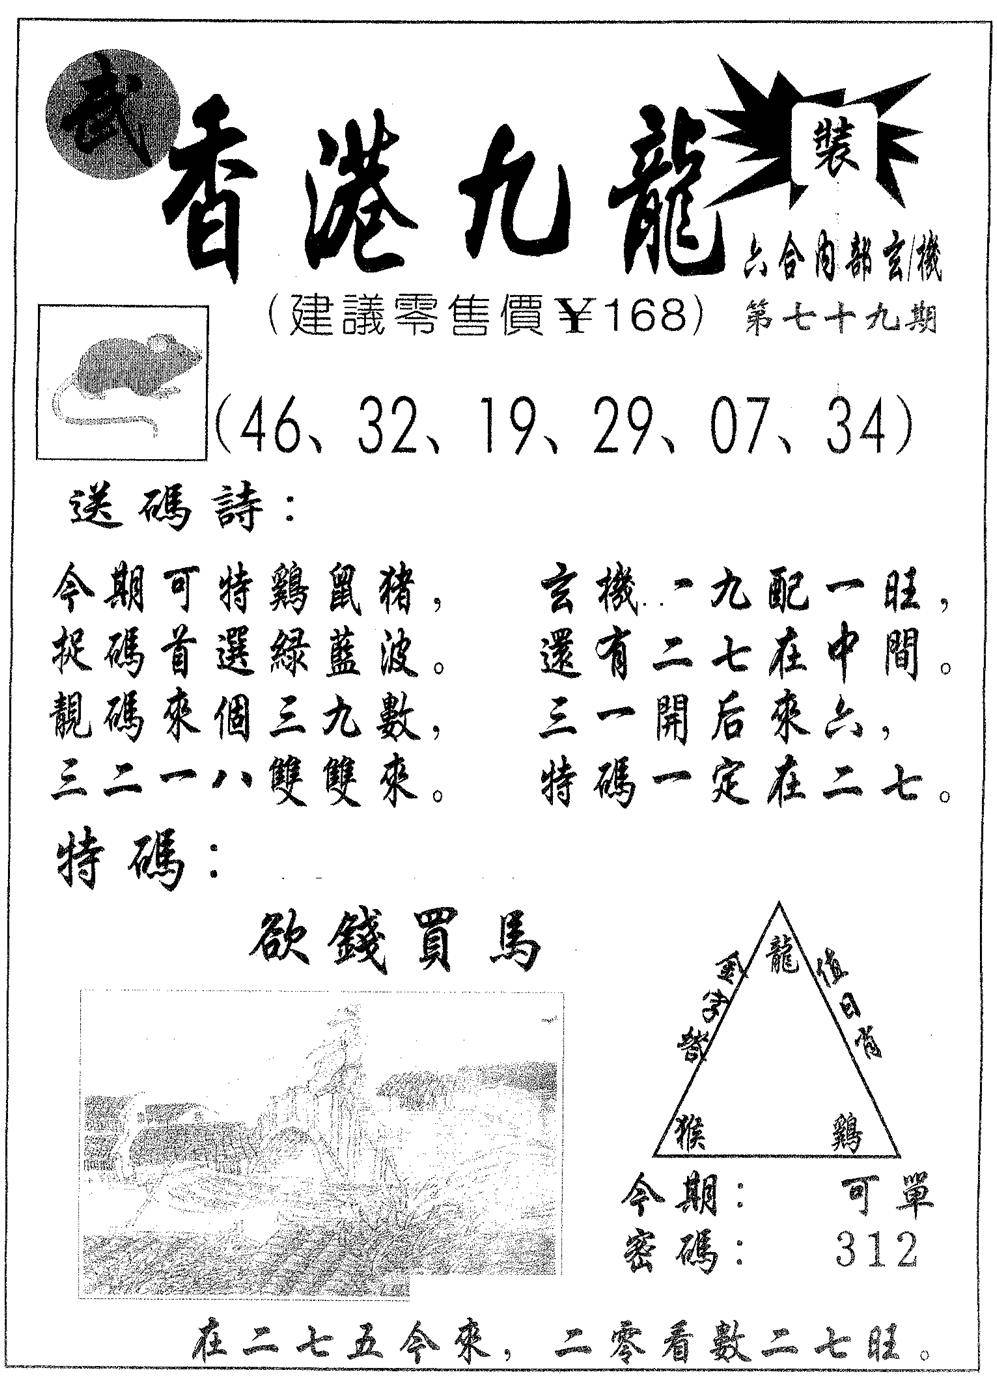 武
香港九龍
裝
六合內部玄機
(建議零售價¥168)
第七十九期
(46、32、19、29、07、34)
送碼詩：
今期可特鷄鼠猪，
捉碼首選綠藍波。
靚碼來個三九數，
三二一八雙雙來。
玄機一九配一旺，
還有二七在中間。
三一開后來六，
特碼一定在二七。
特碼：
欲錢買馬
龍
金字塔
值日肖
猴
鷄
今期： 可單
密碼： 312
在二七五今來，二零看數二七旺。